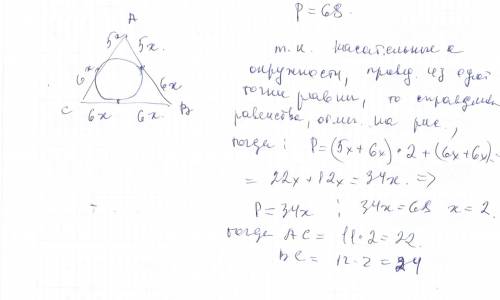 A
5x 5x
6x 6x
C 6x 6x B
P = 68.
т.к. касательные к
окружности, провед. из одной
точки равны, то справедливы
равенства, отмеч. на рис.,
тогда: P=(5x+6x)·2+(6x+6x)=
= 22x+12x=34x. =>
P=34x ; 34x=68 x=2.
тогда AC= 11·2=22.
BC= 12·2=24